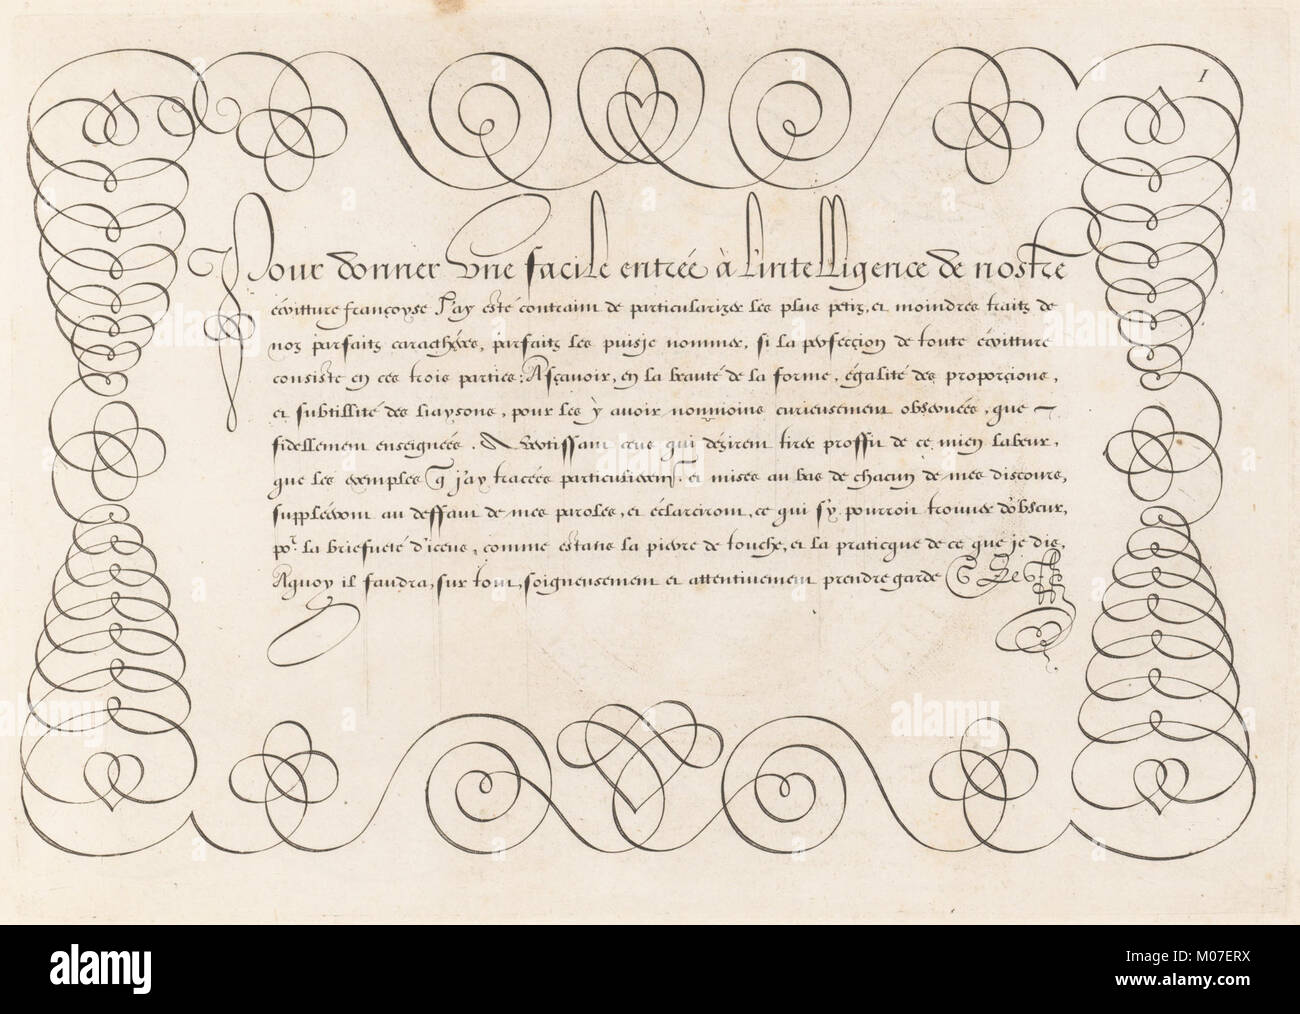 1
Pour donner Une facile entrée à l'intelligence de nostre
écriture françoyse J'ay esté contraint de particularizer les plus petiz, et moindres traitz de
noz parfaitz caractheres, parfaitz les puis je nommer, si la perfecçion de toute écriture
consiste en ces trois parties: Asçavoir, en la beauté de la forme, égalité des proporçions,
et subtillité des liaysons, pour les y avoir non moins curieusement observées, que
fidellement enseignées. Avertissant ceus qui dézirent tirer proffit de ce mien labeur,
que les exemples q j'ay tracées particulierem.t et mises au bas de chacun de mes discours,
suppléeront au deffaut de mes paroles, et éclarciront, ce qui s'y pourroit trouver d'obscur,
po.r la briefueté d'iceus, comme estans la pierre de touche, et la praticque de ce que je dis,
Aquoy il faudra, sur tout, soigneusement et attentivement prendre garde
alamy
alamy
Image ID: M07ERX
www.alamy.com